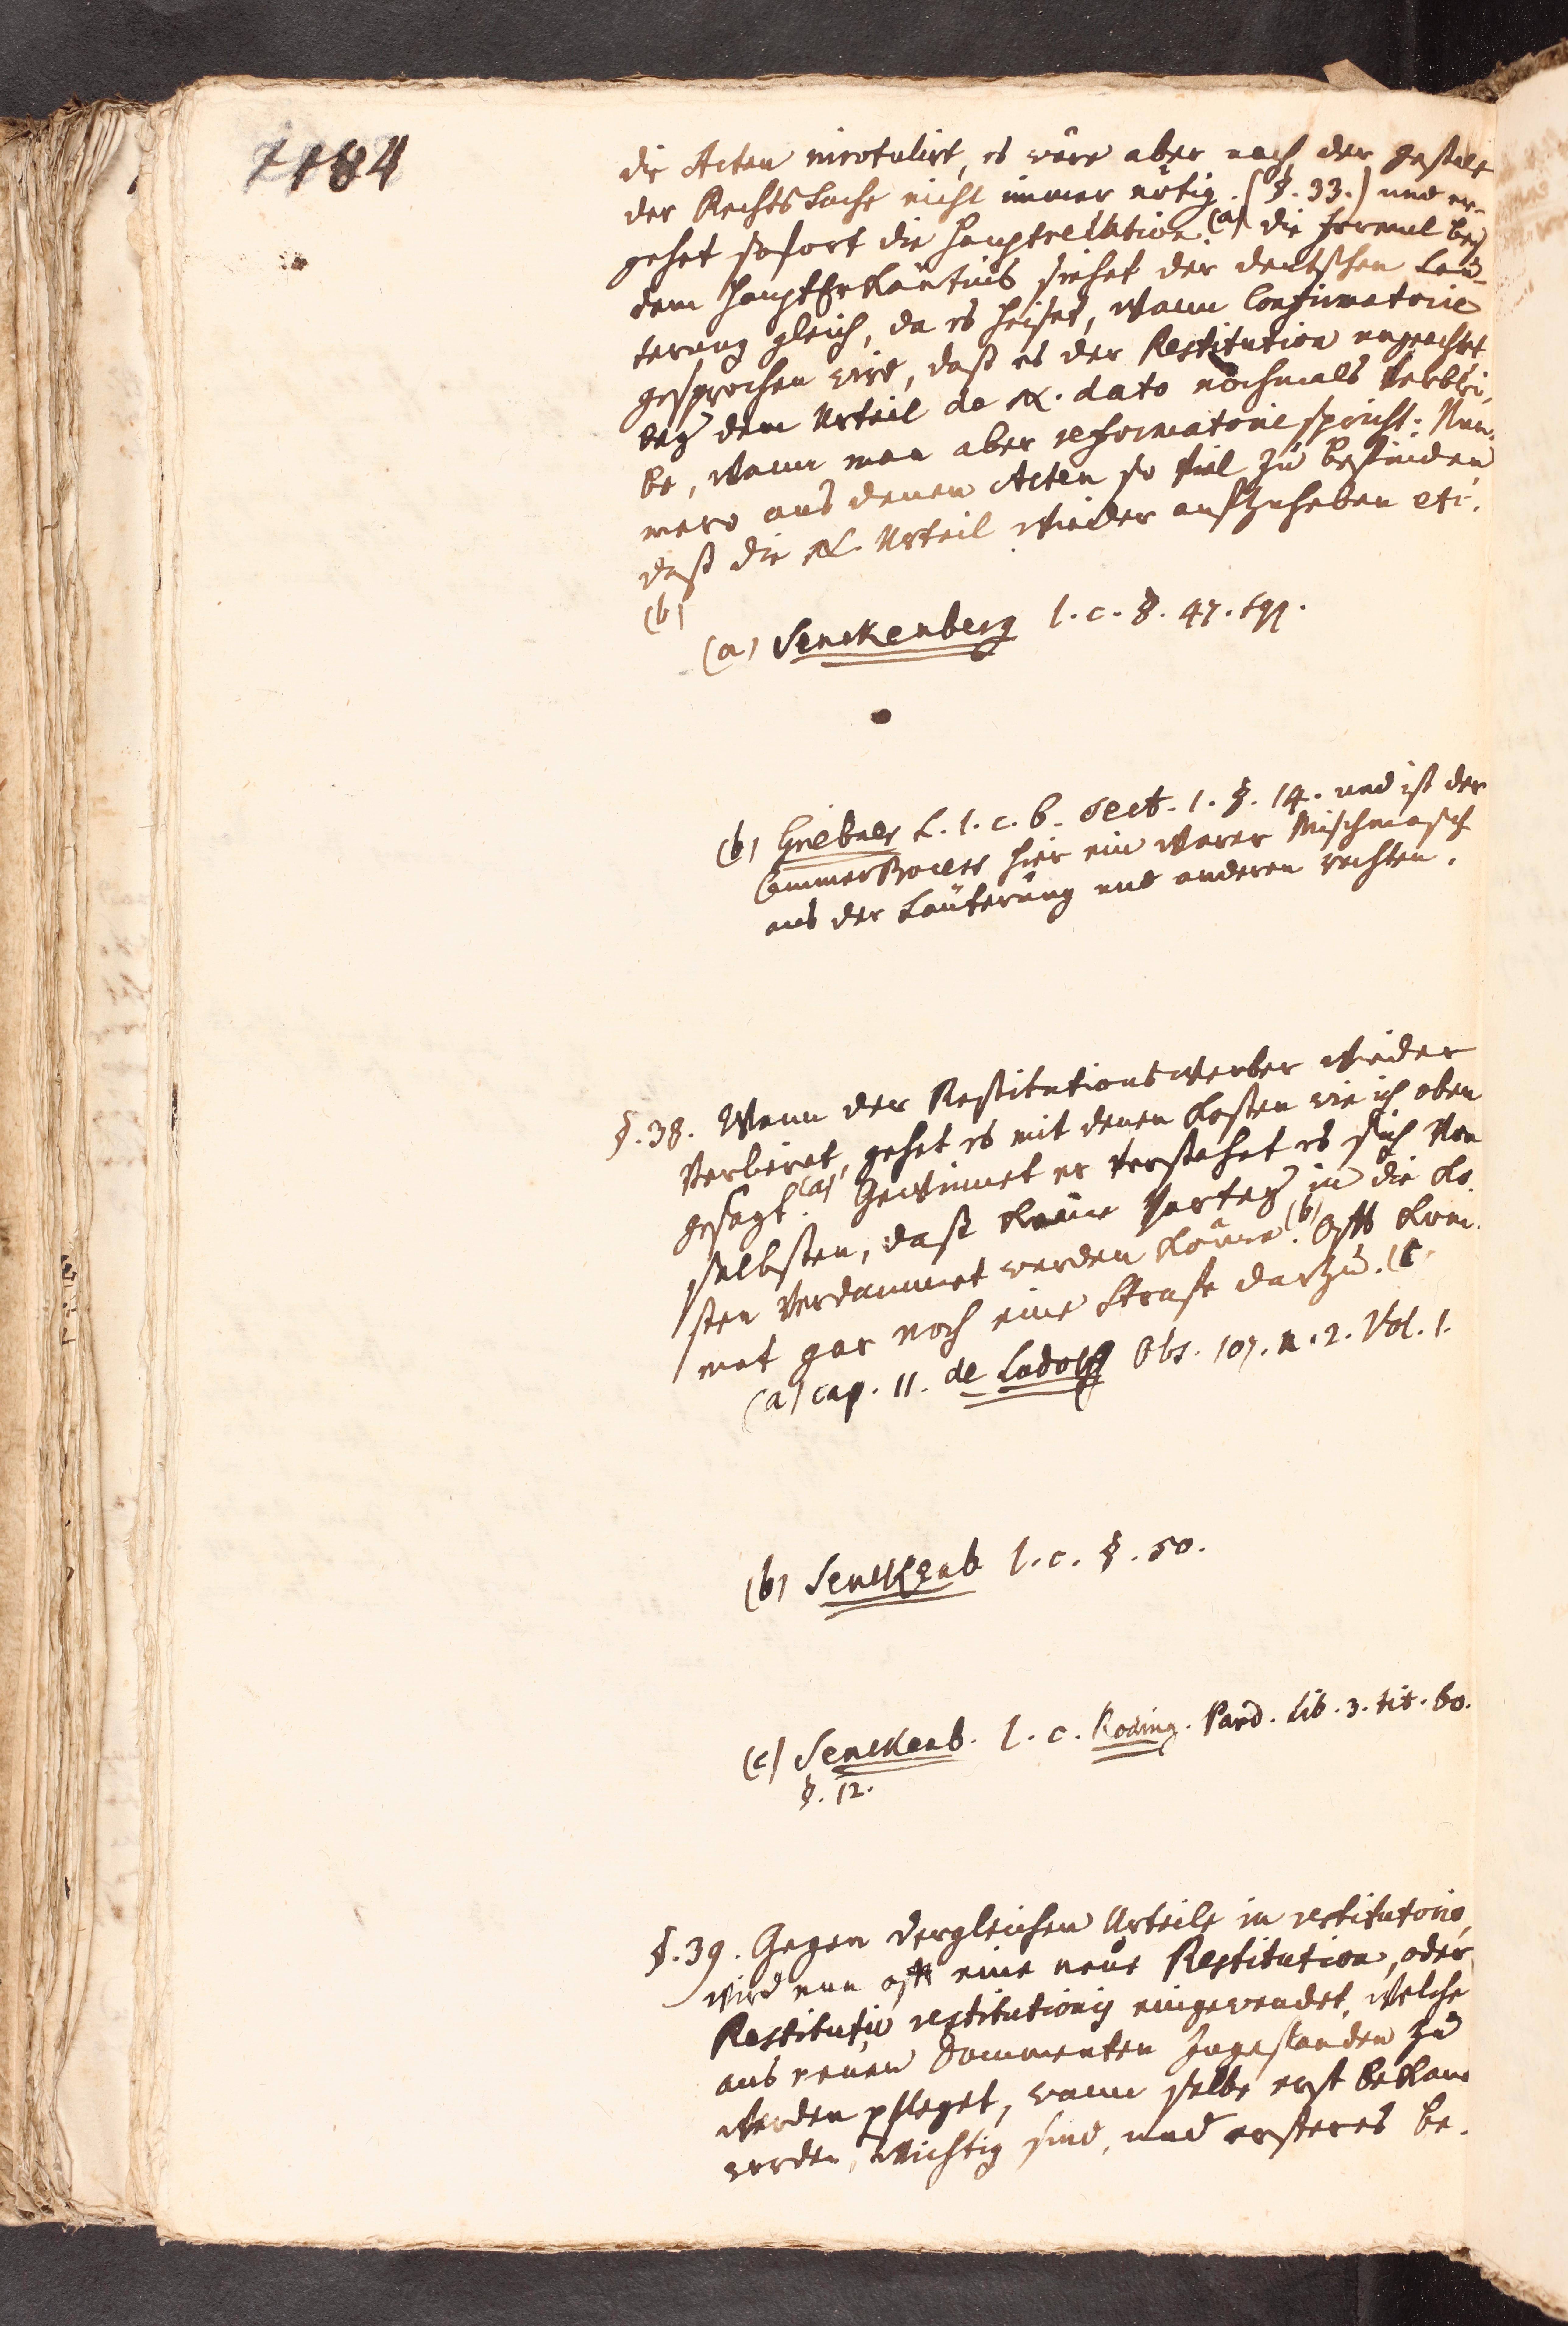 1184
die Acten inrotulirt, es wäre aber nach der gestalt
der RechtsSache nicht immer nötig. (§. 33.) und er-
gehet sofort die Hauptrelation. (a) die formul bey
dem HauptErkäntnis siehet der deutschen Läu-
terung gleich, da es heiset, wann Confirmatorie
gesprochen wird, daß es der Restitution ungeachtet
bey dem Urteil de &. dato nochmals verblei-
be, wann man aber reformatorie spricht: Nun-
mero aus denen Acten so viel zu befinden
daß die &. Urteil wieder aufzuheben etc.
(b)
(a) Senckenberg l. c. §. 47. sqq.
(b) Griebner L. 1. c. 6. Sect. 1. §. 14. und ist der
CammerProcess hier ein warer Mischmasch
aus der Läuterung und anderen rechten.
§. 38. Wann der Restitutionswerber wieder
verlieret, gehet es mit denen Kosten wie ich oben
gesagt. (a) Gewinnet er verstehet es sich von
selbsten, daß keine Partey in die Ko-
sten verdammet werden könne. (b) Oft kom-
met gar noch eine Strafe darzu. (c
(a) cap. 11. de Ludolff Obs. 107. n. 2. Vol. 1.
(b) Senckenb l. c. §. 50.
(c) Senckenb. l. c. Roding. Pand. Lib. 3. tit. 60.
§. 12.
§. 39. Gegen dergleichen Urteile in restitutorio,
wird nun oft eine neue Restitution, oder
Restitutio restitutionis eingewendet, welche
aus neuen Documenten zugestanden zu
werden pfleget, wann selbe erst bekant
worden, wichtig sind, und ersteres be-